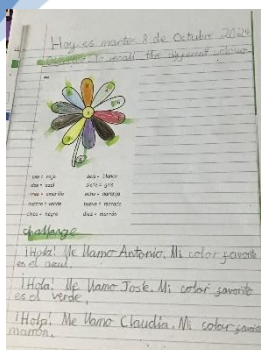 Hoy es martes 8 de Octubre 2024
To recall the different colours
uno = rojo
dos = azul
tres = amarillo
cuatro = verde
cinco = negro
seis = blanco
siete = gris
ocho = naranja
nueve = morado
diez = marrón
challenge
¡Hola! Me llamo Antonio. Mi color favorito
es el azul.
¡Hola! Me llamo José. Mi color favorito
es el verde.
¡Hola! Me llamo Claudia. Mi color favorito
marrón.